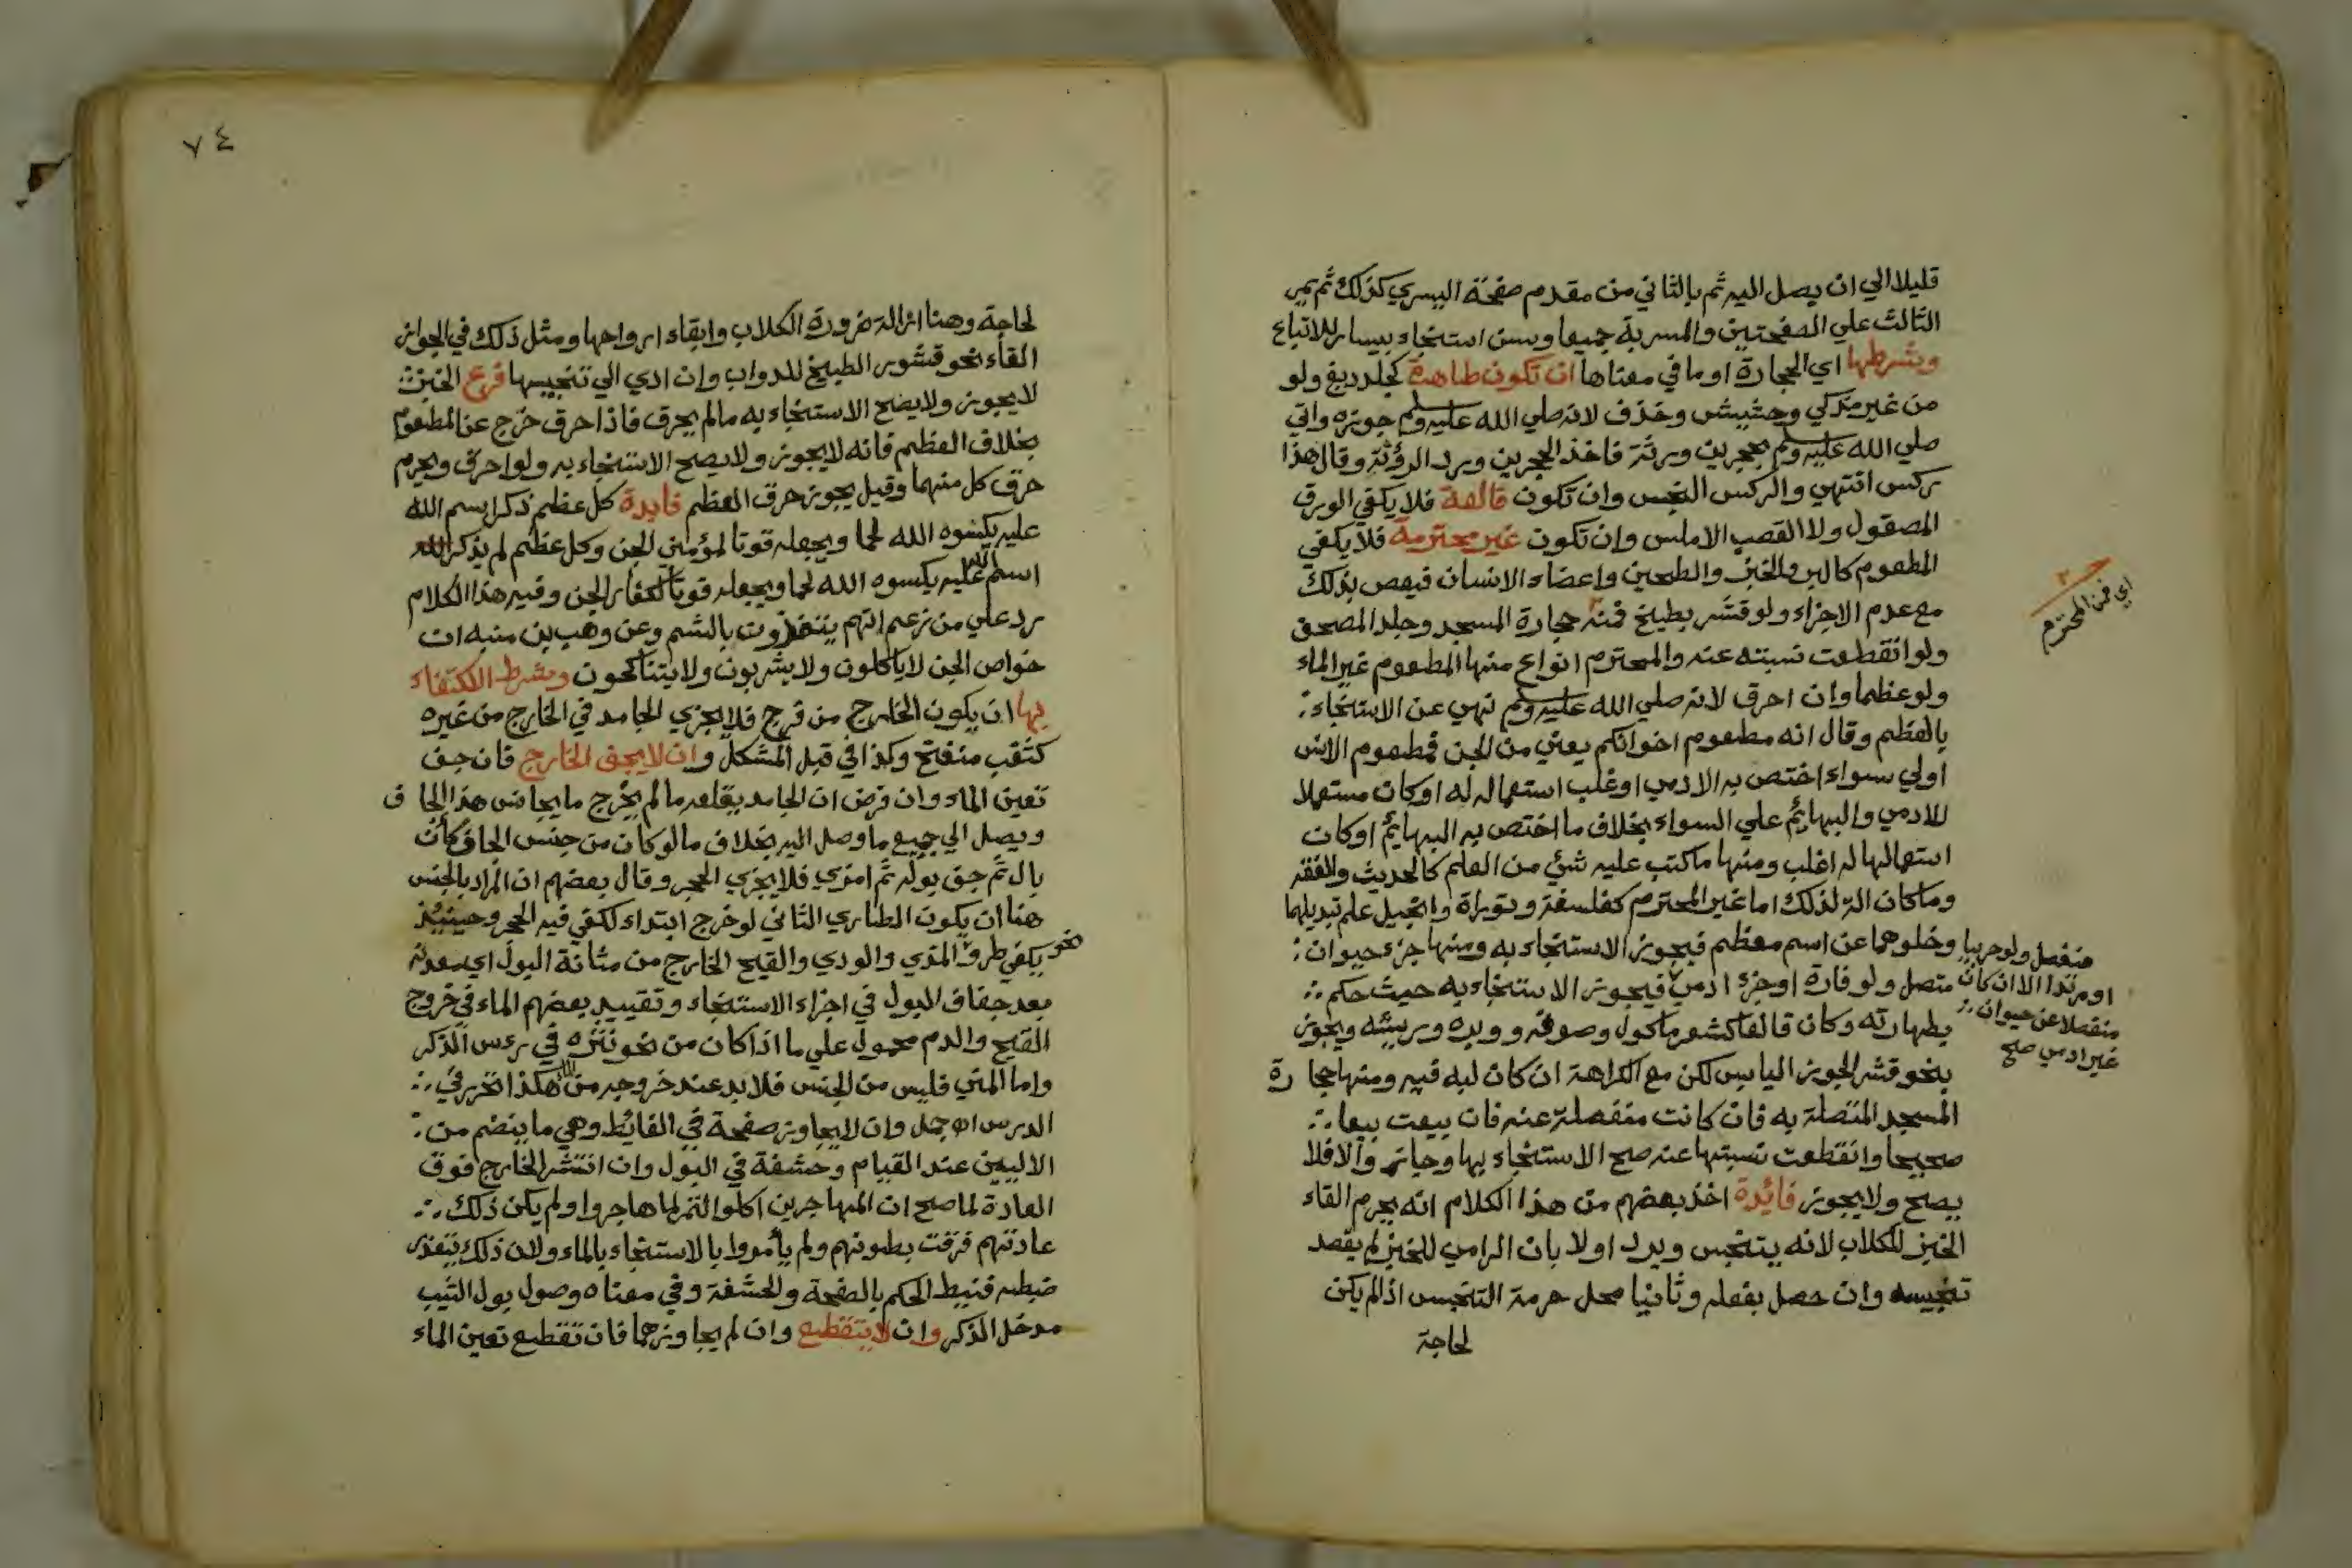 قليلا الي ان يصل اليه ثم بالثاني من مقدم صفحة اليسري كذلك ثم يمر
الثالث علي الصفحتين والمسربة جميعا ويسن استنجاء بيسار للاتباع
وشرطها اي الحجارة او ما في معناها ان تكون طاهرة كجلد دبغ ولو
من غير مذكي وحشيش وخذف لانه صلي الله عليه وسلم جوزه واتي
صلي الله عليه وسلم بحجرين وروثة فاخذ الحجرين ورد الروثة وقال هذا
ركس انتهي والركس النجس وان تكون قالعة فلا يكفي الورق
المصقول ولا القصب الاملس وان تكون غير محترمة فلا يكفي
المطعوم كالبر والخبز والطحين واعضاء الانسان فيعص بذلك
مع عدم الاجزاء ولو قشر بطيخ فمنه حجارة المسجد وجلد المصحف
اي فمن المحترم
ولو انقطعت نسبته عنه والمحترم انواع منها المطعوم غير الماء
ولو عظما وان احرق لانه صلي الله عليه وسلم نهي عن الاستنجاء
بالعظم وقال انه مطعوم اخوانكم يعني من الجن فمطعوم الانس
اولي سواء اختص به الادمي او غلب استعماله له او كان مستعملا
للادمي والبهائم علي السواء بخلاف ما اختص به البهائم او كان
استعمالها له اغلب ومنها ما كتب عليه شئ من العلم كالحديث والفقه
وما كان الة لذلك اما غير المحترم كفلسفة وتوراة وانجيل علم تبديلهما
وخلوهما عن اسم معظم فيجوز الاستنجاء به ومنها جزء حيوان
متصل ولو فارة او جزء ادمي فيجوز الاستنجاء به حيث حكم
منفصل ولو حربيا
او مرتدا الا ان كان
منفصلا عن حيوان
غير ادمي صح
بطهارته وكان قالعا كشعر ماكول وصوفه ووبره وريشه ويجوز
بنحو قشر الجوز اليابس لكن مع الكراهة ان كان لبه فيه ومنها حجارة
المسجد المتصلة به فان كانت منفصلة عنه فان بيعت بيعا
صحيحا وانقطعت نسبتها عنه صح الاستنجاء بها وجاز والا فلا
يصح ولا يجوز فائدة اخذ بعضهم من هذا الكلام انه يحرم القاء
الخبز للكلاب لانه يتنجس ويرد اولا بان الرامي للخبز لم يقصد
تنجيسه وان حصل بفعله وثانيا محل حرمة التنجس اذا لم يكن
لحاجة
٧٤
لحاجة وهنا ازالة ضرورة الكلاب وابقاء ارواحها ومثل ذلك في الجواز
القاء نحو قشور الطبيخ للدواب وان ادي الي تنجيسها فرع الخبز
لا يجوز ولا يصح الاستنجاء به مالم يحرق فاذا احرق خرج عن المطعوم
بخلاف العظم فانه لا يجوز ولا يصح الاستنجاء به ولو احرق ويحرم
حرق كل منهما وقيل يجوز حرق العظم فايدة كل عظم ذكر اسم الله
عليه يكسوه الله لحما ويجعله قوتا لمؤمني الجن وكل عظم لم يذكر
اسم الله عليه يكسوه الله لحما ويجعله قوتا لكفار الجن وفيه هذا الكلام
رد علي من زعم انهم يتغذوت بالشم وعن وهب بن منبه ان
خواص الجن لا ياكلون ولا يشربون ولا يتناكحون وشرط الاكتفاء
بها ان يكون الخارج من فرج فلا يجزي الجامد في الخارج من غيره
كثقب منفتح وكذا في قبل المشكل وان لا يجف الخارج فان جف
تعين الماء وان فرض ان الجامد يقلعه مالم يخرج ما يجانس هذا الجاف
ويصل الي جميع ما وصل اليه بخلاف مالو كان من جنس الجاف كأن
بال ثم جف بوله ثم امذي فلا يجزي الحجر وقال بعضهم ان المراد بالجنس
هنا ان يكون الطاري الثاني لو خرج ابتداء لكفي فيه الحجر وحينئذ
يكفي طرو نحو المذي والودي والقيح الخارج من مثانة البول اي معدنه
بعد جفاف البول في اجزاء الاستنجاء وتقييد بعضهم الماء في خروج
القيح والدم محمول علي ما اذا كان من نحو نثره في رءس الذكر
واما المني فليس من الجنس فلا بد عند خروجه من الماء هكذا تحرر في
الدرس اه جمل وان لا يجاوز صفحة في الغائط وهي ما ينضم من
الاليين عند القيام وحشفة في البول وان انتشر الخارج فوق
العادة لما صح ان المهاجرين اكلوا التمر لما هاجروا ولم يكن ذلك
عادتهم فرقت بطونهم ولم يأمروا بالاستنجاء بالماء ولان ذلك يتعذر
ضبطه فنيط الحكم بالصفحة والحشفة وفي معناه وصول بول الثيب
مدخل الذكر وان لا يتقطع وان لم يجاوزهما فان تقطع تعين الماء